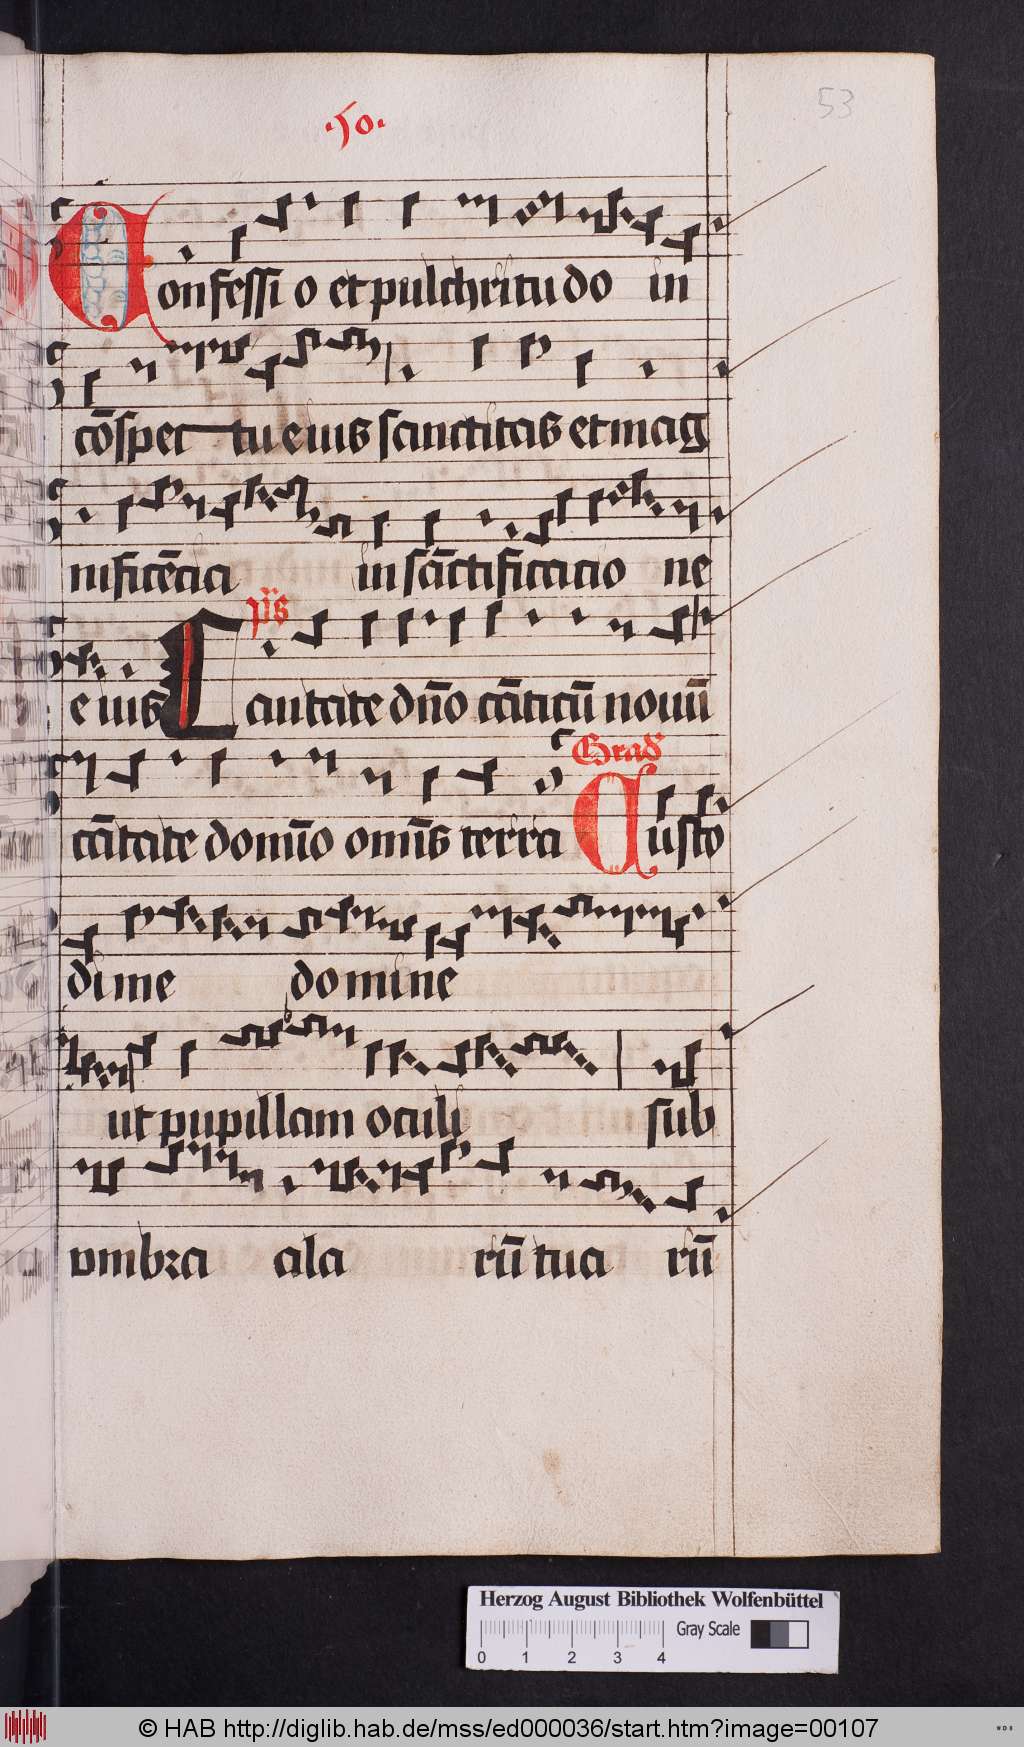 .50.
53
Confessi o et pulchritudo in
cōspec tu eius sanctitas et mag
nificēcia in scāctificacio ne
eius p̄s Cantate dn̄o cāticū nouū
Grad
cātate domīo omīs terra Custo
di me domine
ut pupillam oculi sub
vmbra ala rū tua rū
Herzog August Bibliothek Wolfenbüttel
Gray Scale
0 1 2 3 4
© HAB http://diglib.hab.de/mss/ed000036/start.htm?image=00107
WDB